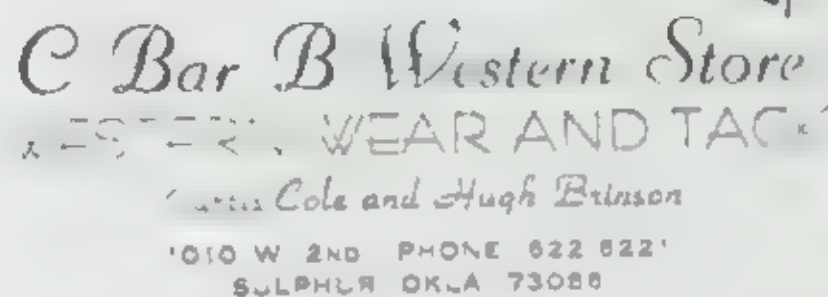 C Bar B Western Store
WESTERN WEAR AND TACK
Curtis Cole and Hugh Brinson
1010 W 2ND PHONE 622 6221
SULPHUR OKLA 73086